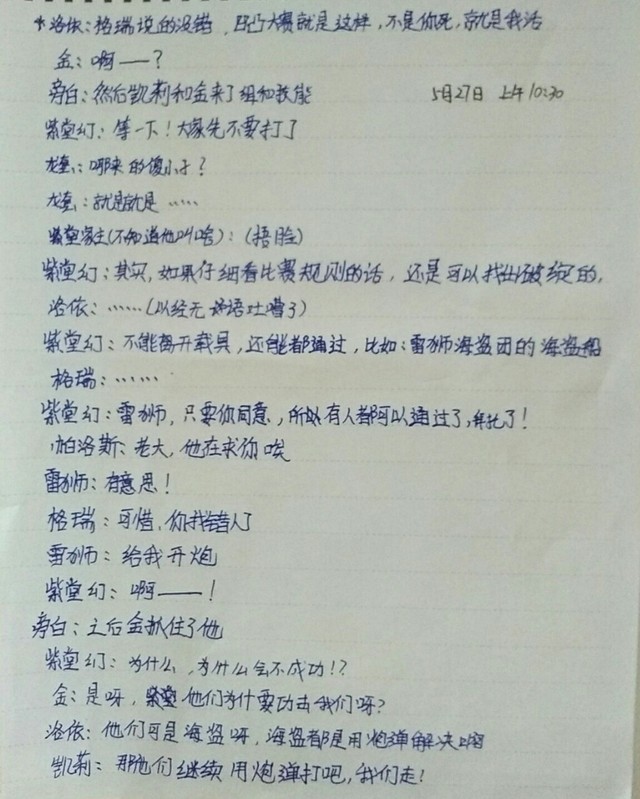 *洛依：格瑞说的没错，凹凸大赛就是这样，不是你死，就是我活
金：啊——？
旁白：然后凯莉和金来了组和技能 5月27日 上午10:30
紫堂幻：等一下！大家先不要打了
龙套1：哪来的傻小子？
龙套2：就是就是……
紫堂家主(不知道他叫啥)：(捂脸)
紫堂幻：其实，如果仔细看比赛规则的话，还是可以找出破绽的，
洛依：……(以经无语吐嘈了)
紫堂幻：不能离开载具，还能都通过，比如：雷狮海盗团的海盗船
格瑞：……
紫堂幻：雷狮，只要你同意，所以有人都可以通过了，拜托了！
帕洛斯：老大，他在求你唉
雷狮：有意思！
格瑞：可惜，你找错人了
雷狮：给我开炮
紫堂幻：啊——！
旁白：之后金抓住了他
紫堂幻：为什么，为什么会不成功！？
金：是呀，他们为什要功击我们呀？
洛依：他们可是海盗呀，海盗都是用炮弹解决
凯莉：那他们继续用炮弹打吧，我们走！